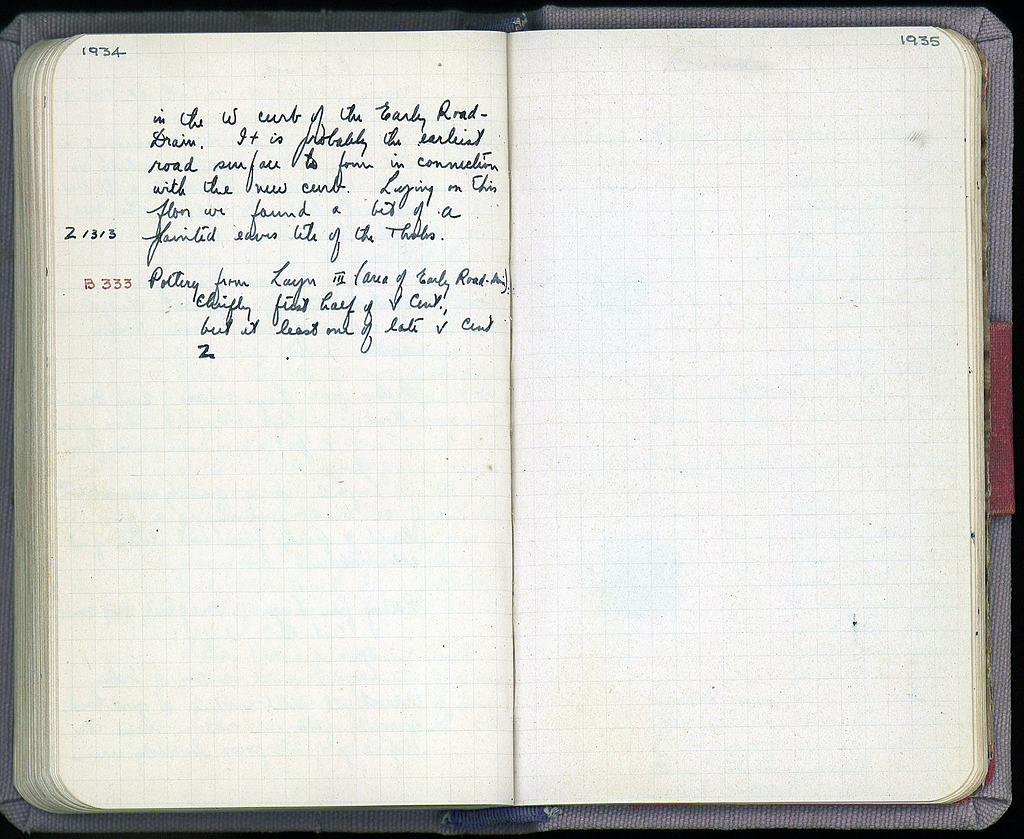 1934
in the W curb of the Early Road-
Drain. It is probably the earliest
road surface to form in connection
with the new curb. Lying on this
floor we found a bit of a
Z 1313 painted eaves tile of the Tholos.
B 333 Pottery from Layer III (area of Early Road-drain).
chiefly first half of V Cent.,
but at least one of late V Cent
2
1935